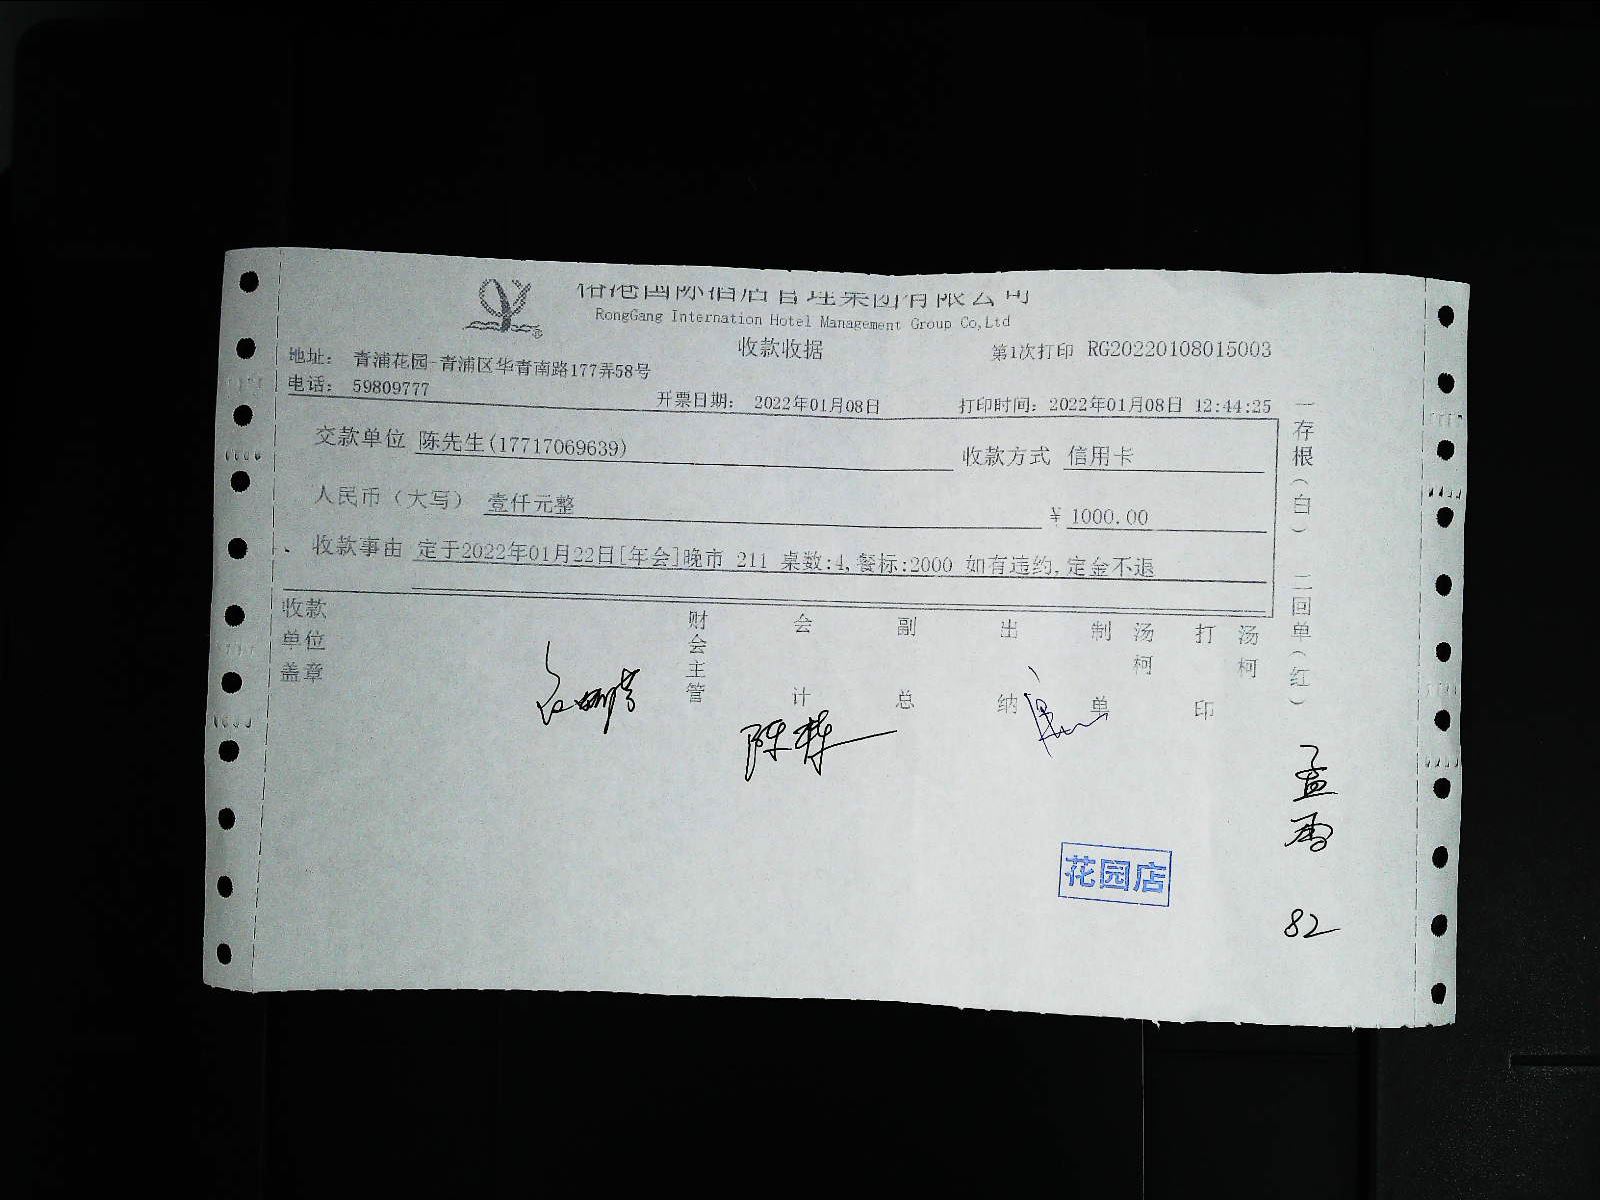 国际酒店管理集团有限公司
RongGang Internation Hotel Management Group Co,Ltd
收款收据
第1次打印 RG20220108015003
地址： 青浦花园-青浦区华青南路177弄58号
电话： 59809777
开票日期： 2022年01月08日
打印时间：2022年01月08日 12:44:25
交款单位 陈先生(17717069639)
收款方式 信用卡
人民币（大写） 壹仟元整
¥ 1000.00
收款事由 定于2022年01月22日[年会]晚市 211 桌数:4,餐标:2000 如有违约,定金不退
收款单位盖章
财会主管
会计
副总
出纳
制单 汤柯
打印 汤柯
一存根（白） 二回单（红）
陈栋
孟雨
82
花园店